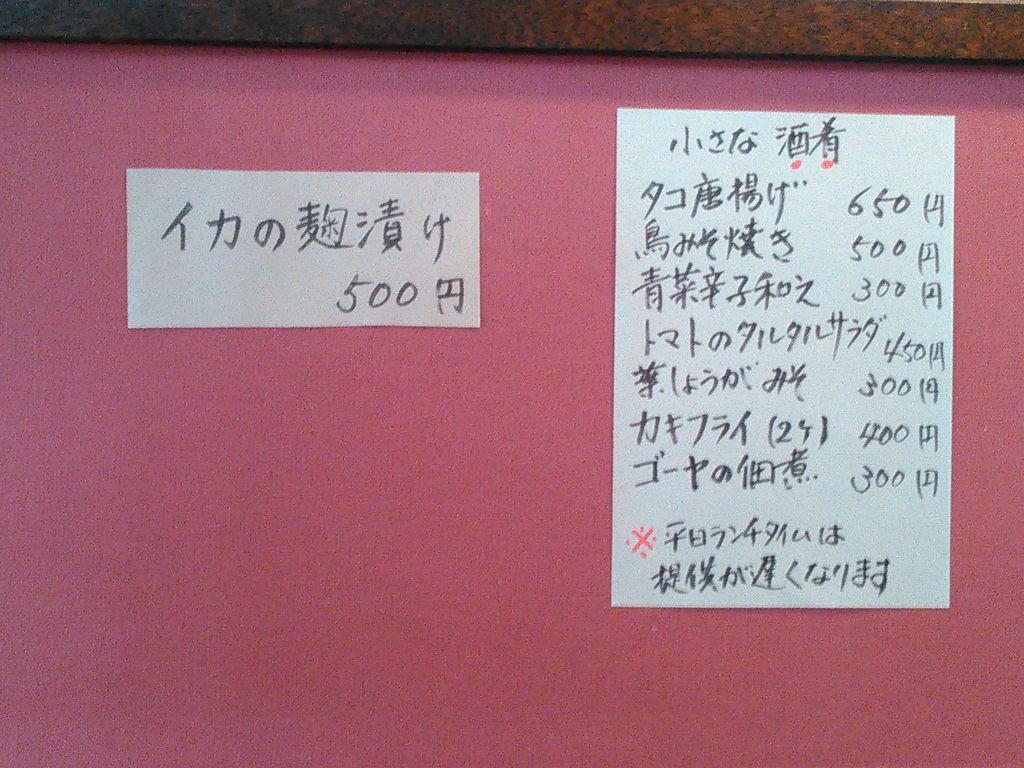 イカの麹漬け
500円
小さな 酒肴
タコ唐揚げ 650円
鳥みそ焼き 500円
青菜辛子和え 300円
トマトのタルタルサラダ 450円
葉しょうがみそ 300円
カキフライ(2ケ) 400円
ゴーヤの佃煮 300円
※平日ランチタイムは
提供が遅くなります